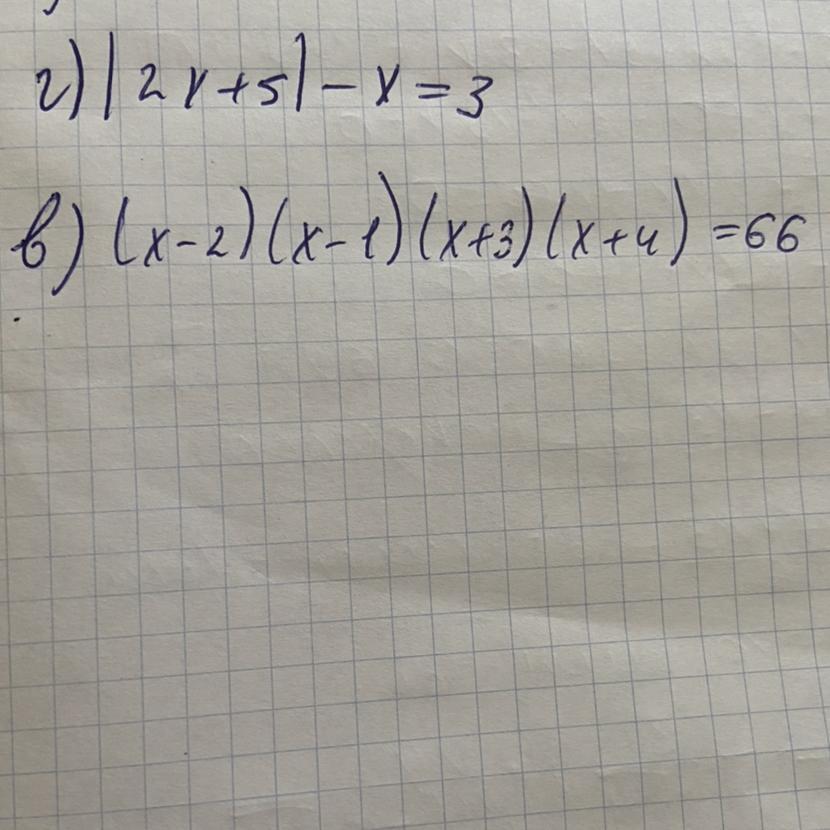 г) |2x+5| - x = 3
в) (x-2)(x-1)(x+3)(x+4) = 66